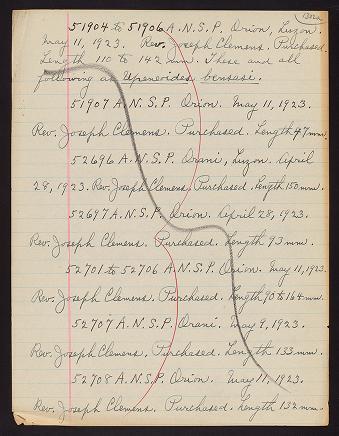 51904 to 51906 A.N.S.P. Orion, Luzon.
May 11, 1923. Rev. Joseph Clemens. Purchased.
Length 110 to 142 mm. These and all
following as Upeneoides bensasi.
51907 A.N.S.P. Orion. May 11, 1923.
Rev. Joseph Clemens. Purchased. Length 47 mm.
52696 A.N.S.P. Orani, Luzon. April
28, 1923. Rev. Joseph Clemens. Purchased. Length 150 mm.
52697 A.N.S.P. Orion. April 28, 1923.
Rev. Joseph Clemens. Purchased. Length 93 mm.
52701 to 52706 A.N.S.P. Orion. May 11, 1923.
Rev. Joseph Clemens. Purchased. Length 90 to 164 mm.
52707 A.N.S.P. Orani. May 9, 1923.
Rev. Joseph Clemens. Purchased. Length 133 mm.
52708 A.N.S.P. Orion. May 11, 1923.
Rev. Joseph Clemens. Purchased. Length 132 mm.